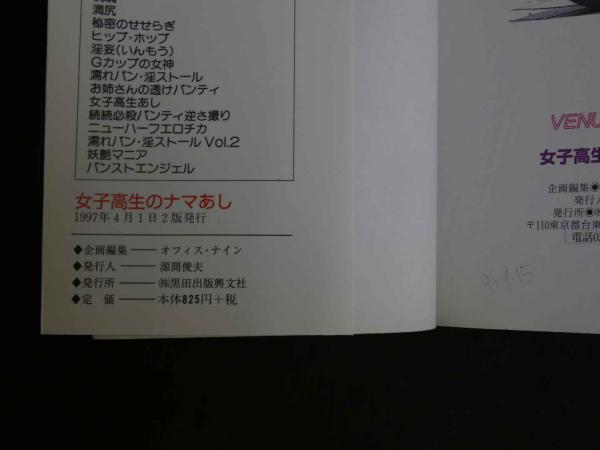 満尻
秘密のせせらぎ
ヒップ・ホップ
淫妄(いんもう)
Gカップの女神
濡れパン・淫ストール
お姉さんの透けパンティ
女子高生あし
続続必殺パンティ逆さ撮り
ニューハーフエロチカ
濡れパン・淫ストール Vol.2
妖艶マニア
パンストエンジェル
女子高生のナマあし
1997年4月1日2版発行
◆企画編集 ―― オフィス・ナイン
◆発行人 ―― 源間俊夫
◆発行所 ―― ㈱黒田出版興文社
◆定 価 ―― 本体825円+税
VENU
女子高生
企画編集◉
発行人
発行所◉㈱
〒110東京都台東
電話03
9.9.15